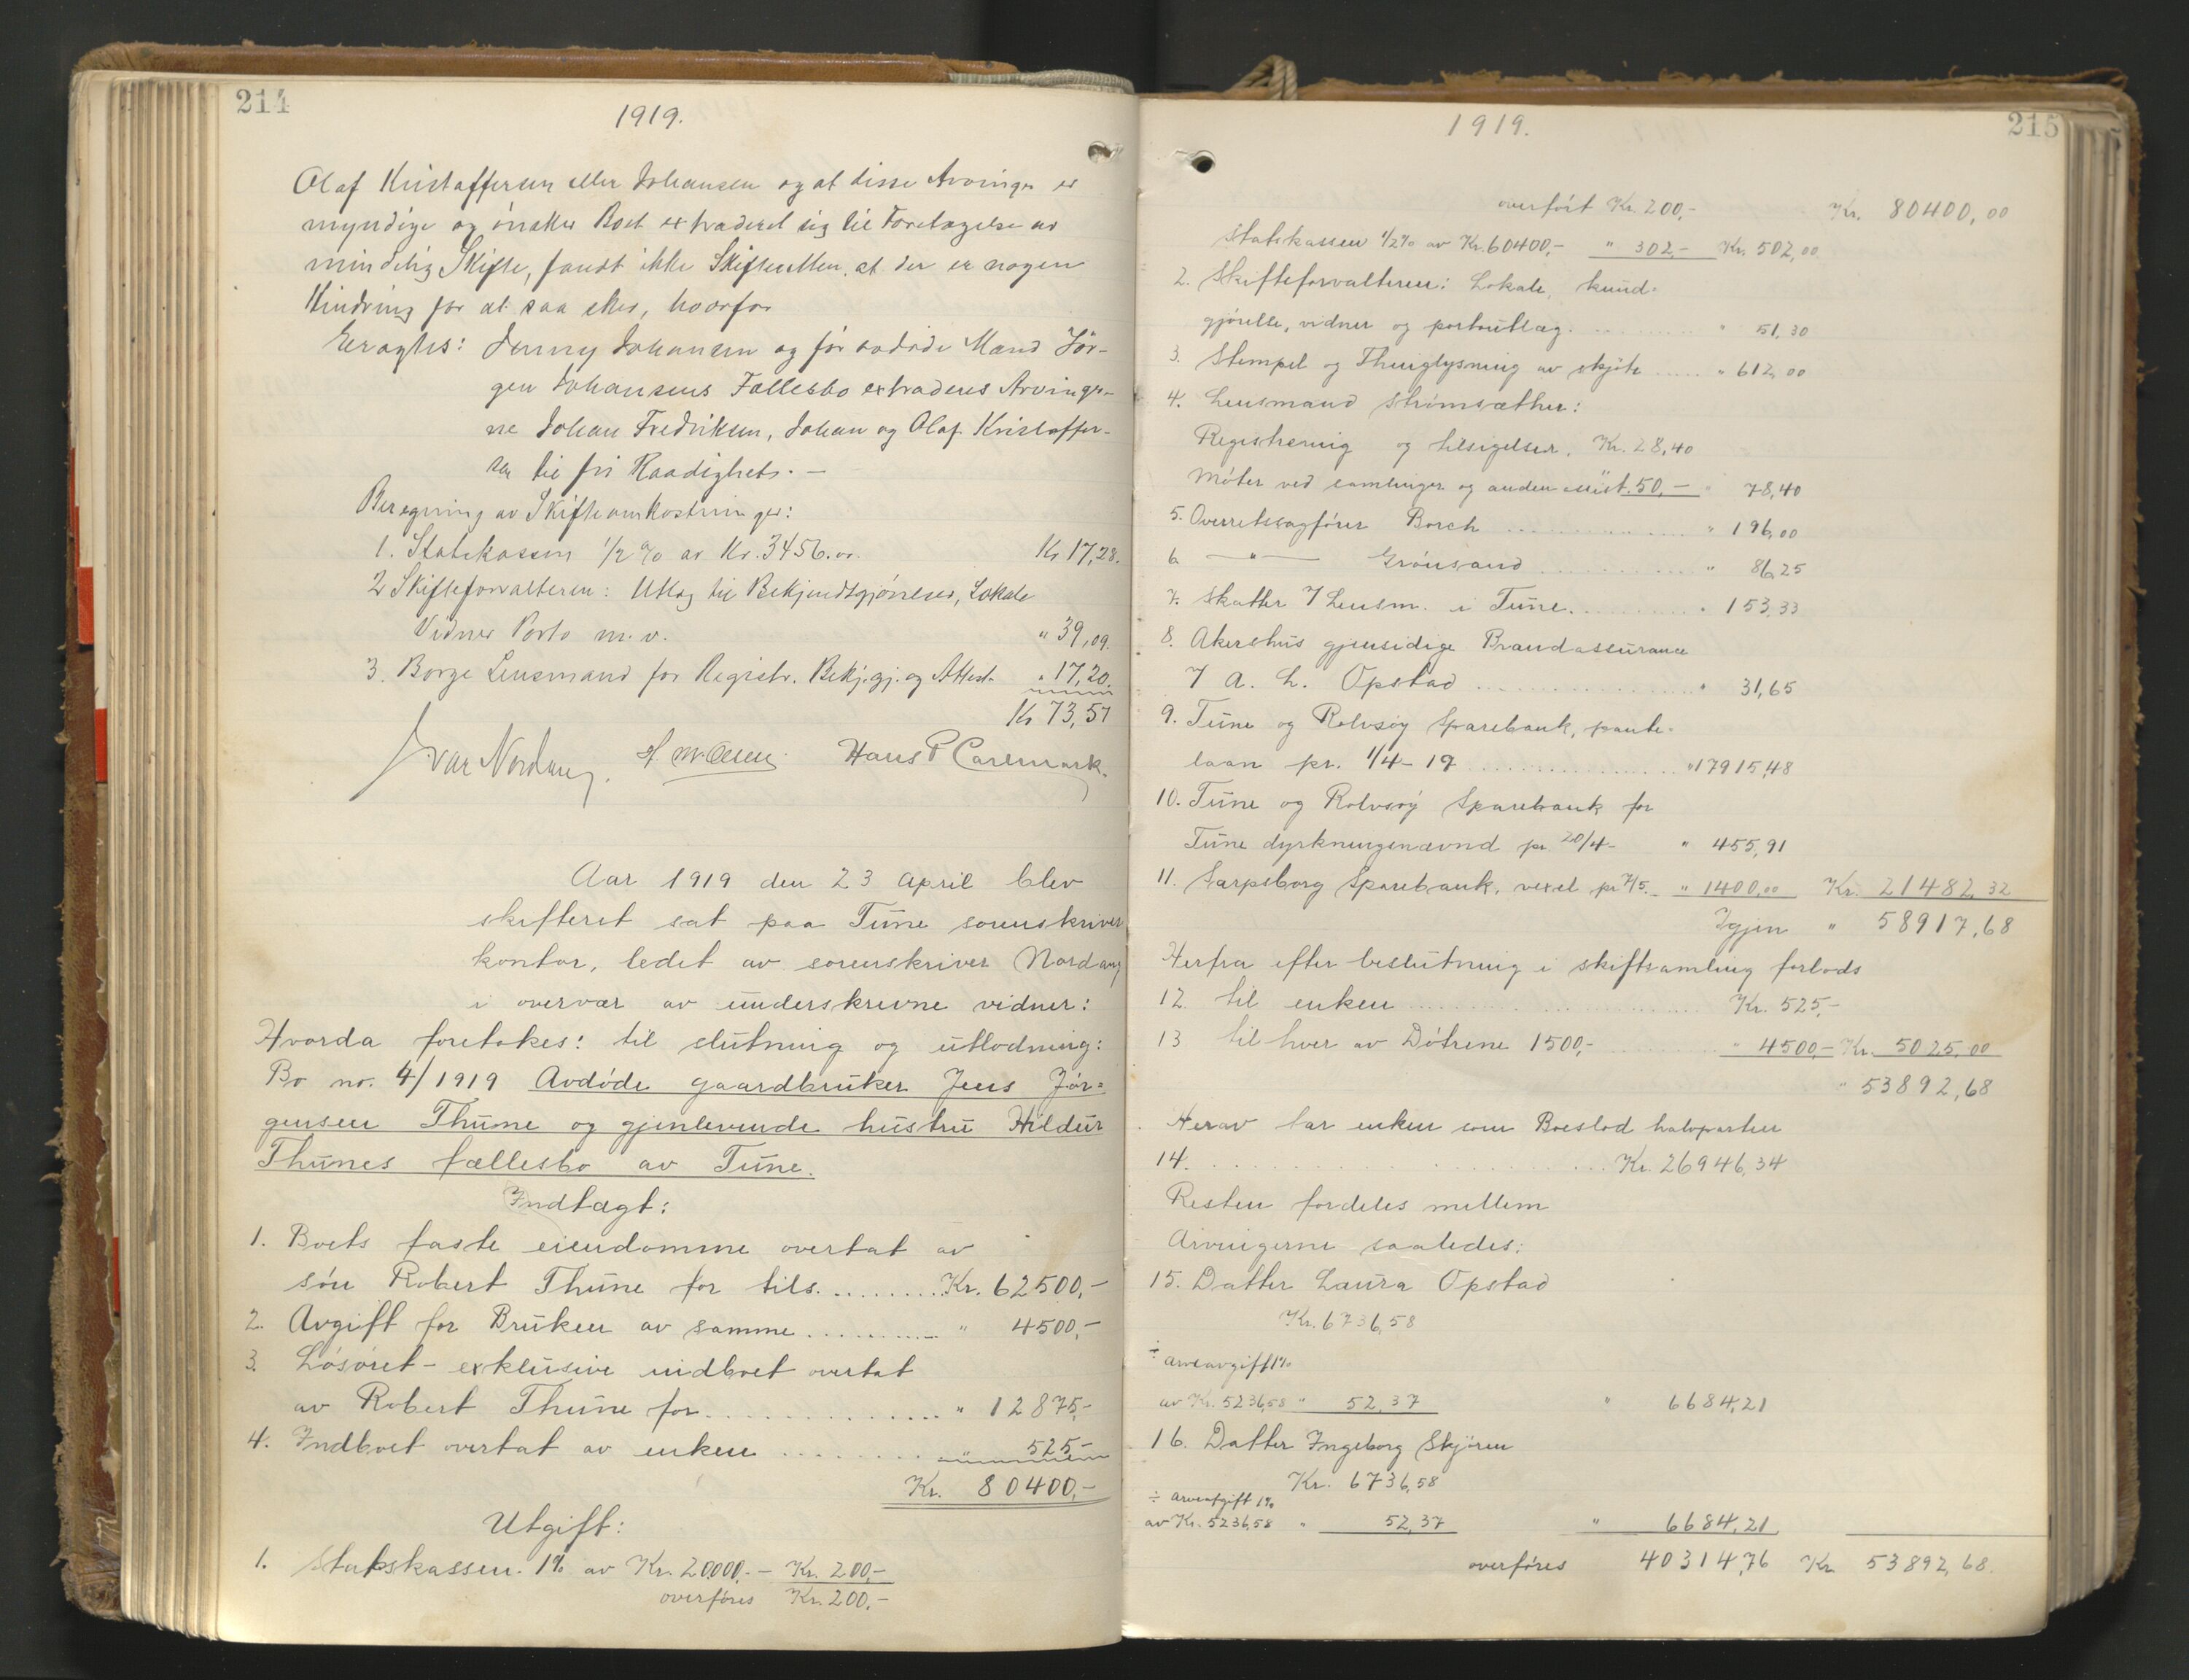 214
1919.
Olaf Kristoffersen eller Johansen og at disse Arvinger er
myndige og ønsker Boet extraderet sig til Foretagelse av
mindelig Skifte, fandt ikke Skifteretten, at der er nogen
Hindring for at saa sker, hvorfor
Eragtes: Jenny Johansen og før avdøde Mand Jör-
gen Johansens Fællesbo extraderes Arvinger-
ne Johan Fredriksen, Johan og Olaf Kristoffer-
sen til fri Raadighet. —
Beregning av Skifteomkostninger:
1. Statskassen 1/2 % av Kr. 3456.00 Kr 17,28.
2 Skifteforvalteren: Utlæg til Bekjendtgjørelser, Lokale
Vidner Porto m.v. " 39,09.
3. Borge Lensmand for Registr. Bekj.gj. og Attest. " 17,20.
Kr 73,57
Ivar Nordang. Hans P Carlmark.
Aar 1919 den 23 april blev
skifteret sat paa Tune sorenskriver
kontor, ledet av sorenskriver Nordang
i overvær av underskrevne vidner:
Hvorda foretokes: til slutning og utlodning:
Bo no. 4/1919 Avdöde gaardbruker Jens Jör=
gensen Thune og gjenlevende hustru Hildur
Thunes fællesbo av Tune.
Indtægt:
1. Boets faste eiendomme overtat av
sön Robert Thune for tils. ......... Kr. 62500,-
2. Avgift for Bruken av samme .......... " 4500,-
3. Lösöret - exklusive indboet overtat
av Robert Thune for .............. " 12875,-
4. Indboet overtat av enken ........ " 525,-
Kr. 80400,-
Utgift:
1. Statskassen. 1% av Kr. 20000,- — Kr. 200,-
overföres Kr. 200,-
215
1919.
overfört Kr. 200,- Kr. 80400,00
Statskassen 1/2% av Kr. 60400,- " 302,- Kr. 502,00
2. Skifteforvalteren: Lokale, kund-
gjörelse, vidner og portoutlæg. .......... " 51,30
3. Stempel og Thinglysning av skjöte ..... " 612,00
4. Lensmand Strömsæther:
Registrering og tilsigelser. Kr. 28,40
Möter ved samlinger og anden assist. 50,- " 78,40
5. Overretssagförer Borch ................ " 196,00
6. — " — Grönsand ............. " 86,25
7. Skatter 7 Lensm. i Tune. ........... " 153,33
8. Akershus gjensidige Brandassurance
7 A. L. Opstad ................. " 31,65
9. Tune og Rolvsöy Sparebank, pante-
laan pr. 1/4-19 ................ " 17915,48
10. Tune og Rolvsöy Sparebank for
Tune dyrkningsnævnd pr 20/4- " 455,91
11. Sarpsborg Sparebank, vexel pr 7/5. " 1400,00 Kr. 21482,32
Igjen " 58917,68
Herfra efter beslutning i skiftsamling forlods
12 til enken ........................ Kr. 525,-
13 til hver av Dötrene 1500,- ........ " 4500,- Kr. 5025,00
" 53892,68
Herav tar enken som Boeslod halvparten
14. ........................ Kr. 26946,34
Resten fordeles mellem
Arvingerne saaledes:
15. Datter Laura Opstad
Kr. 6736,58
÷ arveavgift 1%
av Kr. 5236,58 " 52,37 " 6684,21
16. Datter Ingeborg Skjören
Kr. 6736,58
÷ arveafgift 1%
av Kr. 5236,58 " 52,37 " 6684,21
overföres 40314,76 Kr. 53892,68.